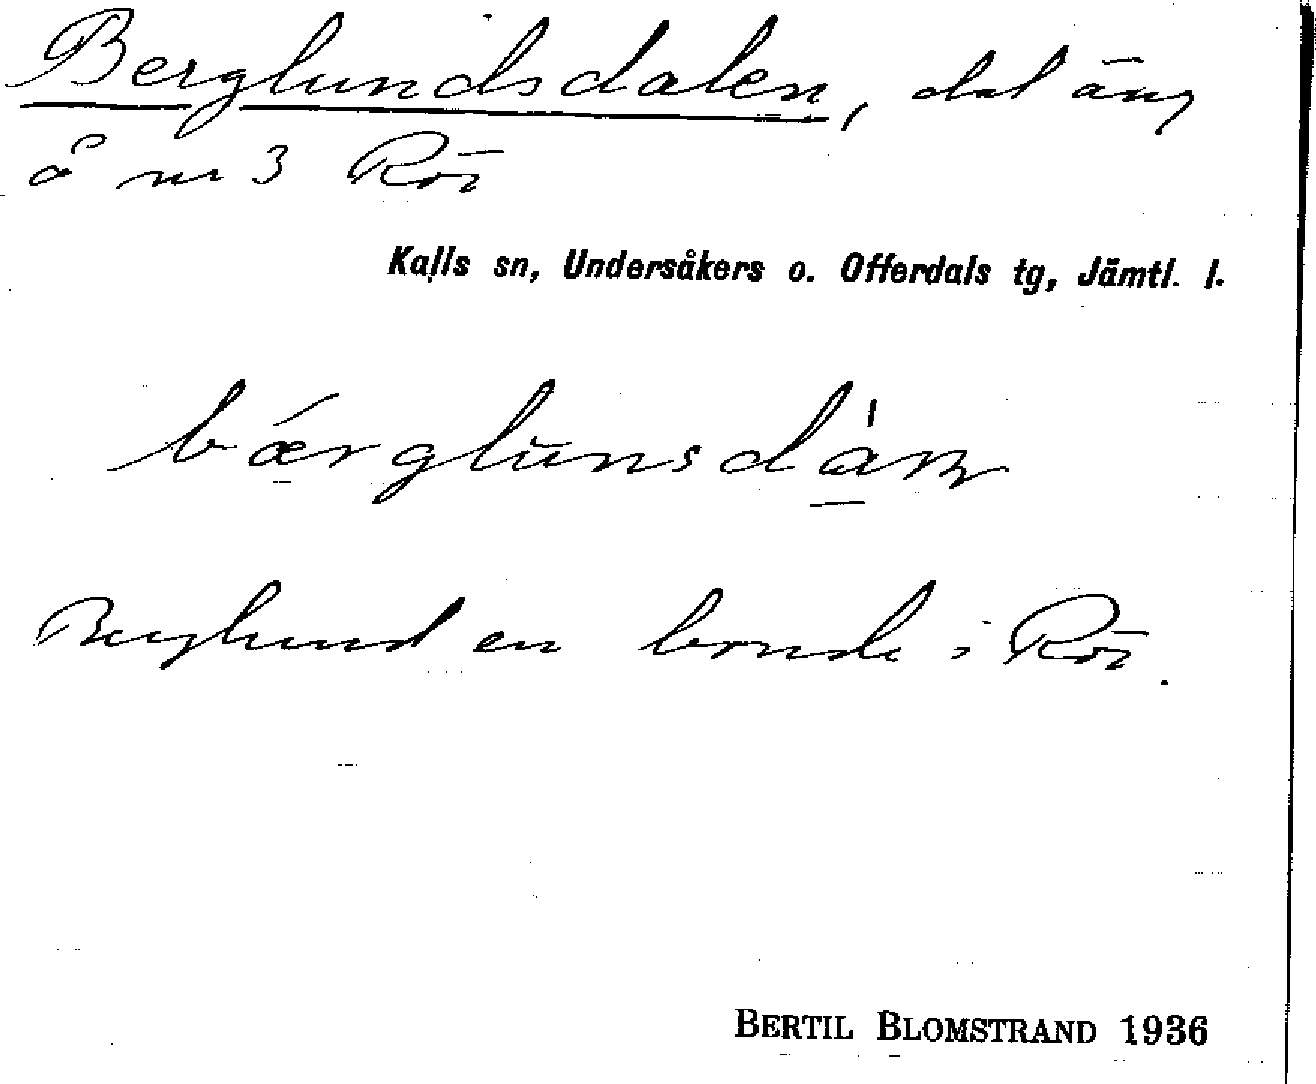 Berglundsdalen, del äng
å nr 3 Röi
Kalls sn, Undersåkers o. Offerdals tg, Jämtl. l.
Berglund en bonde i Röi.
BERTIL BLOMSTRAND 1936